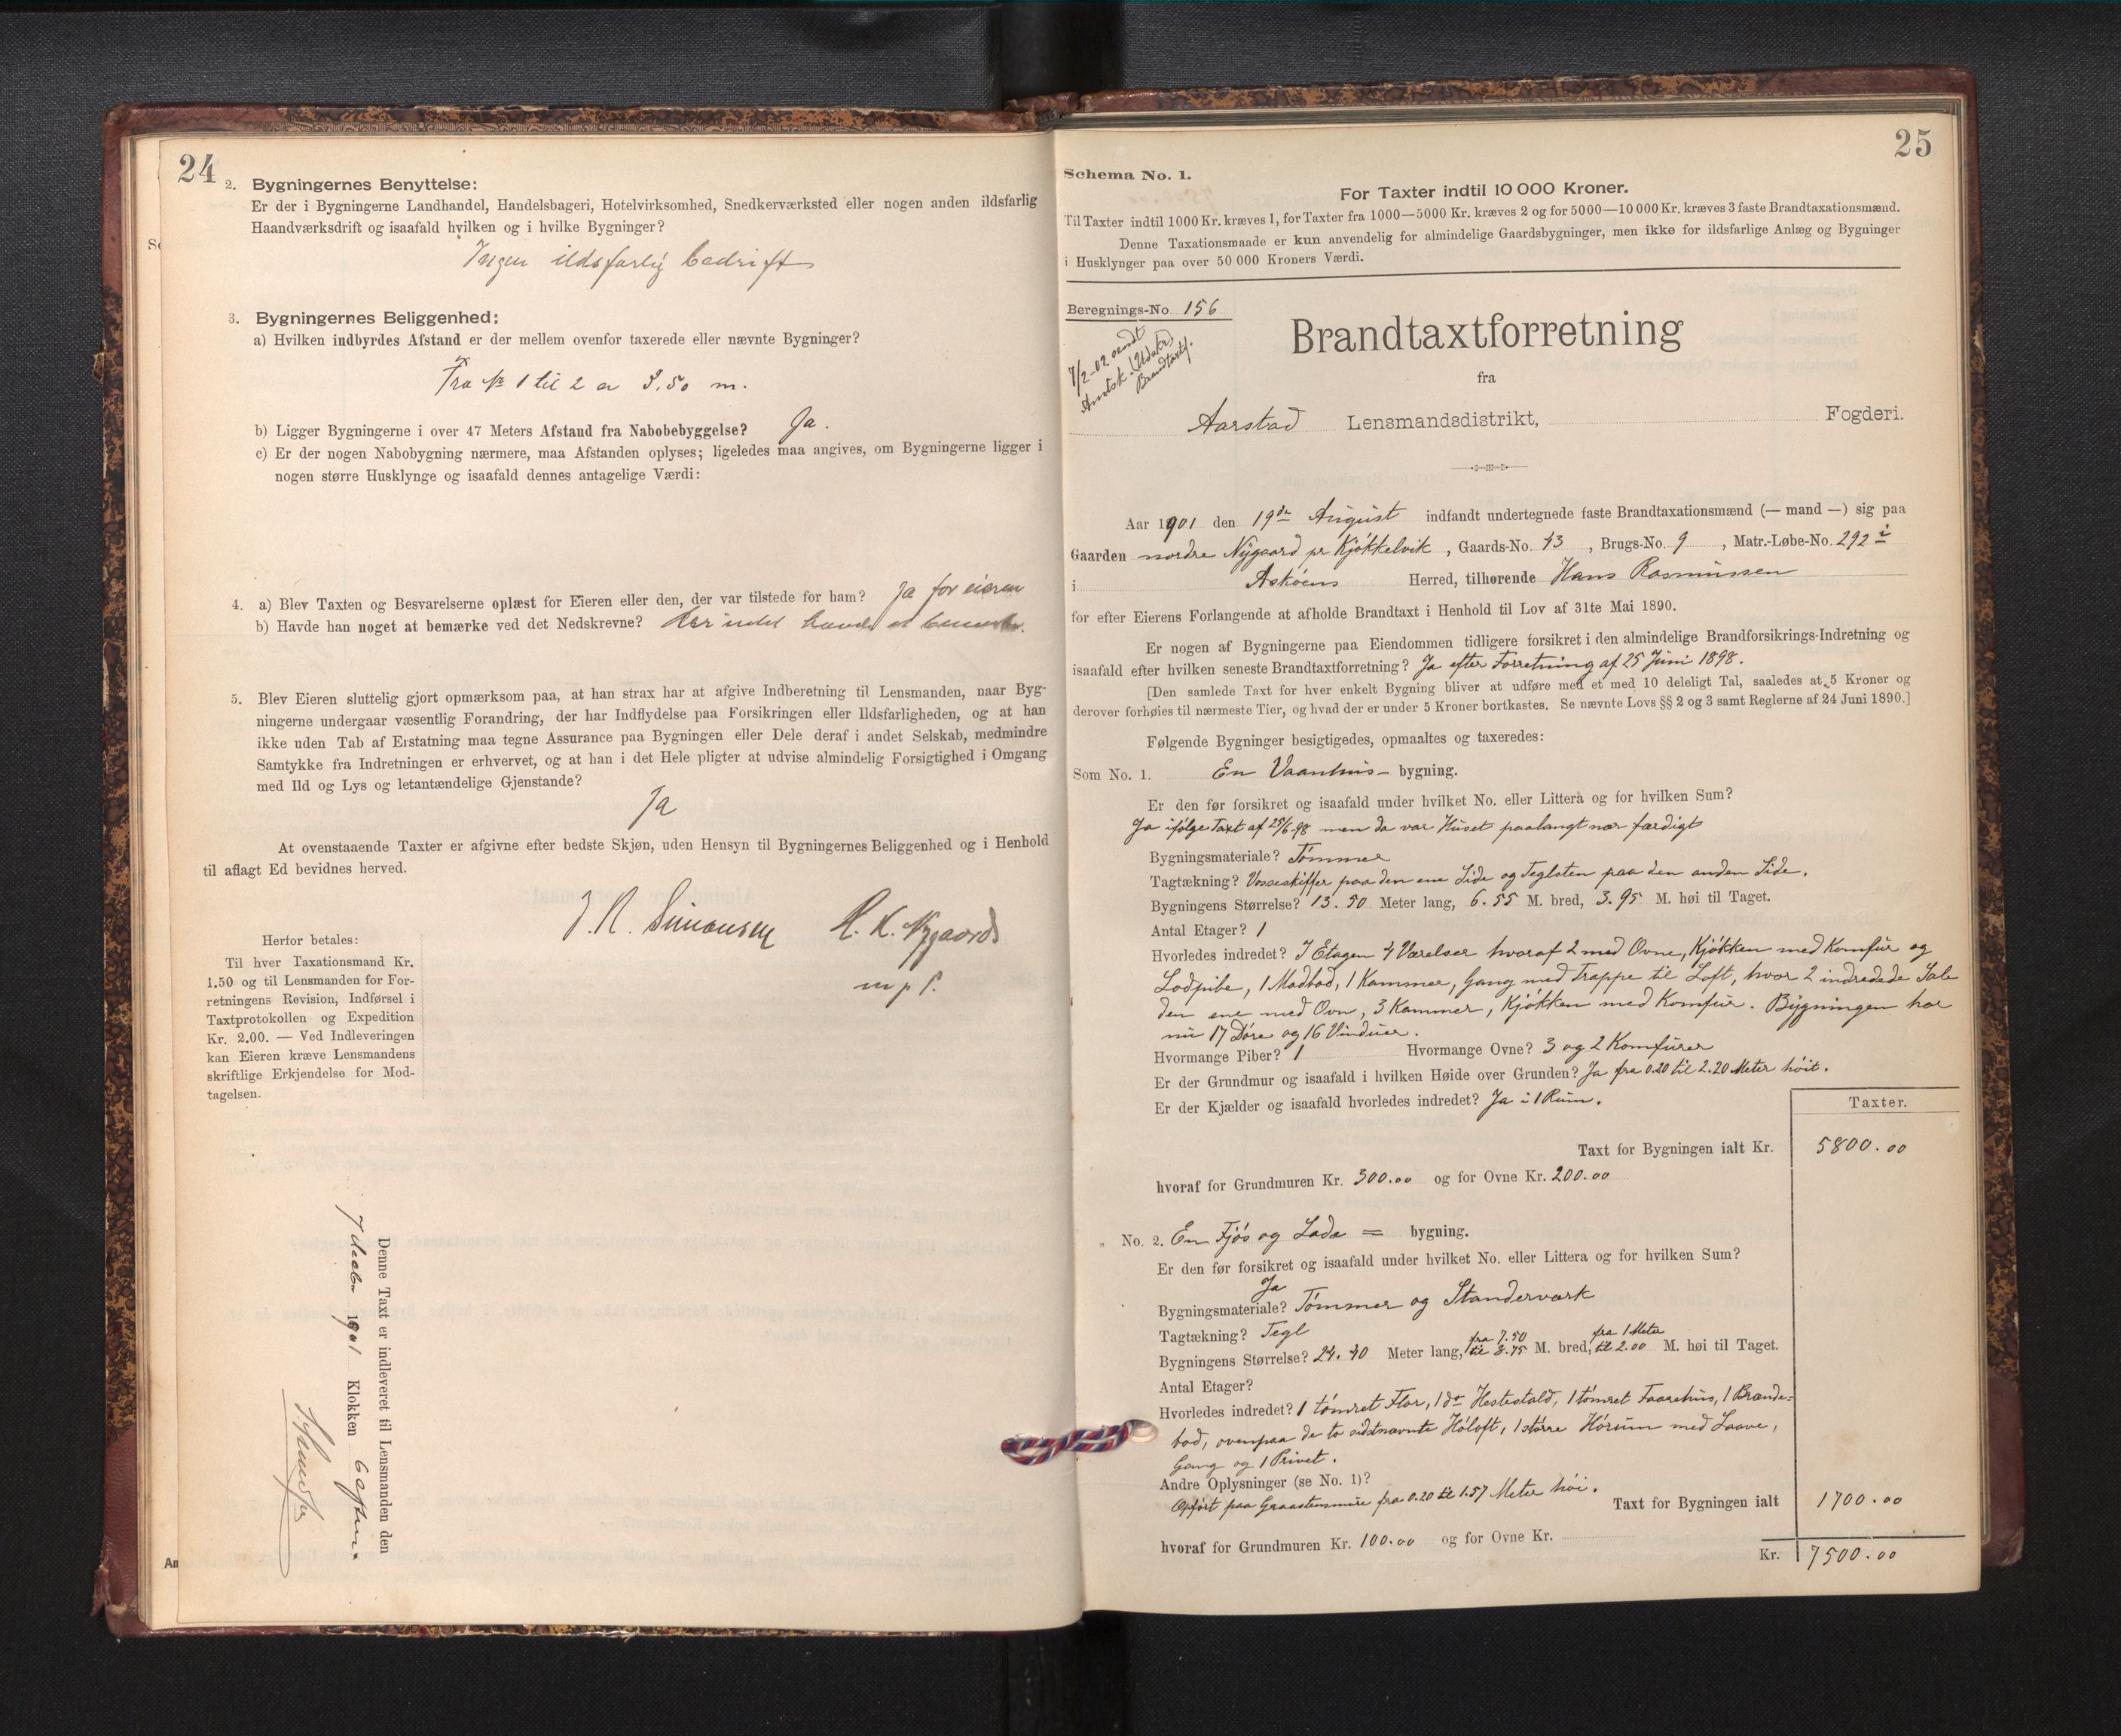 24
2. Bygningernes Benyttelse:
Er der i Bygningerne Landhandel, Handelsbageri, Hotelvirksomhed, Snedkerværksted eller nogen anden ildsfarlig
Haandværksdrift og isaafald hvilken og i hvilke Bygninger?
Ingen ildsfarlig bedrift
3. Bygningernes Beliggenhed:
a) Hvilken indbyrdes Afstand er der mellem ovenfor taxerede eller nævnte Bygninger?
Fra № 1 til 2 er 3.50 m.
b) Ligger Bygningerne i over 47 Meters Afstand fra Nabobebyggelse? Ja.
c) Er der nogen Nabobygning nærmere, maa Afstanden oplyses; ligeledes maa angives, om Bygningerne ligger i
nogen større Husklynge og isaafald dennes antagelige Værdi:
4. a) Blev Taxten og Besvarelserne oplæst for Eieren eller den, der var tilstede for ham? Ja for eieren
b) Havde han noget at bemærke ved det Nedskrevne? Har intet havde at bemærke.
5. Blev Eieren sluttelig gjort opmærksom paa, at han strax har at afgive Indberetning til Lensmanden, naar Byg-
ningerne undergaar væsentlig Forandring, der har Indflydelse paa Forsikringen eller Ildsfarligheden, og at han
ikke uden Tab af Erstatning maa tegne Assurance paa Bygningen eller Dele deraf i andet Selskab, medmindre
Samtykke fra Indretningen er erhvervet, og at han i det Hele pligter at udvise almindelig Forsigtighed i Omgang
med Ild og Lys og letantændelige Gjenstande?
Ja
At ovenstaaende Taxter er afgivne efter bedste Skjøn, uden Hensyn til Bygningernes Beliggenhed og i Henhold
til aflagt Ed bevidnes herved.
J. N. Simonsen R. K. Nygaard
m p f.
Herfor betales:
Til hver Taxationsmand Kr.
1.50 og til Lensmanden for For-
retningens Revision, Indførsel i
Taxtprotokollen og Expedition
Kr. 2.00. — Ved Indleveringen
kan Eieren kræve Lensmandens
skriftlige Erkjendelse for Mod-
tagelsen.
Denne Taxt er indleveret til Lensmanden den
7 decbr 1901 Klokken 6 aften.
25
Schema No. 1.
For Taxter indtil 10 000 Kroner.
Til Taxter indtil 1000 Kr. kræves 1, for Taxter fra 1000—5000 Kr. kræves 2 og for 5000—10 000 Kr. kræves 3 faste Brandtaxationsmænd.
Denne Taxationsmaade er kun anvendelig for almindelige Gaardsbygninger, men ikke for ildsfarlige Anlæg og Bygninger
i Husklynger paa over 50 000 Kroners Værdi.
Beregnings-No. 156
7/2-02 sendt
Amtsk. (Udskr)
Brandtaxtf.
Brandtaxtforretning
fra
Aarstad Lensmandsdistrikt, Fogderi.
Aar 1901 den 19de August indfandt undertegnede faste Brandtaxationsmænd (— mand —) sig paa
Gaarden nordre Nygaard pr Kjøkkelvik, Gaards-No. 43, Brugs-No. 9, Matr.-Løbe-No. 292 i
i Askøens Herred, tilhørende Hans Rasmussen
for efter Eierens Forlangende at afholde Brandtaxt i Henhold til Lov af 31te Mai 1890.
Er nogen af Bygningerne paa Eiendommen tidligere forsikret i den almindelige Brandforsikrings-Indretning og
isaafald efter hvilken seneste Brandtaxtforretning? Ja efter Forretning af 25 Juni 1898.
[Den samlede Taxt for hver enkelt Bygning bliver at udføre med et med 10 deleligt Tal, saaledes at 5 Kroner og
derover forhøies til nærmeste Tier, og hvad der er under 5 Kroner bortkastes. Se nævnte Lovs §§ 2 og 3 samt Reglerne af 24 Juni 1890.]
Følgende Bygninger besigtigedes, opmaaltes og taxeredes:
Som No. 1. En Vaanhus- bygning.
Er den før forsikret og isaafald under hvilket No. eller Littera og for hvilken Sum?
Ja ifølge Taxt af 25/6-98 men da var Huset paalangt nær færdigt
Bygningsmateriale? Tømmer
Tagtækning? Vosseskiffer paa den ene Side og Teglsten paa den anden Side.
Bygningens Størrelse? 13.50 Meter lang, 6.55 M. bred, 3.95 M. høi til Taget.
Antal Etager? 1
Hvorledes indredet? I Etagen 4 Værelser hvoraf 2 med Ovne, Kjøkken med Komfur og
Lodpibe, 1 Madbod, 1 Kammer, Gang med Trappe til Loft, hvor 2 indredede Sale
den ene med Ovn, 3 Kammer, Kjøkken med Komfur. Bygningen har
nu 17 Døre og 16 Vinduer.
Hvormange Piber? 1 Hvormange Ovne? 3 og 2 Komfurer
Er der Grundmur og isaafald i hvilken Høide over Grunden? Ja fra 0.20 til 2.20 Meter høit.
Er der Kjælder og isaafald hvorledes indredet? Ja i 1 Rum.
Taxter.
Taxt for Bygningen ialt Kr. 5800.00
hvoraf for Grundmuren Kr. 300.00 og for Ovne Kr. 200.00
" No. 2. En Fjøs og Lade = bygning.
Er den før forsikret og isaafald under hvilket No. eller Littera og for hvilken Sum?
Ja
Bygningsmateriale? Tømmer og Standerværk
Tagtækning? Tegl
Bygningens Størrelse? 24.40 Meter lang, fra 7.50 til 8.75 M. bred, fra 1 Meter til 2.00 M. høi til Taget.
Antal Etager?
Hvorledes indredet? 1 tømret Flor, 1 do Hestestald, 1 tømret Faarehus, 1 Brænde-
bod, ovenpaa de to sidstnævnte Høloft, 1 større Hørum med Laave,
Gang og 1 Privet.
Andre Oplysninger (se No. 1)?
Opført paa Graastensmure fra 0.20 til 1.57 Meter høi.
Taxt for Bygningen ialt 1700.00
hvoraf for Grundmuren Kr. 100.00 og for Ovne Kr.
Kr. 7500.00